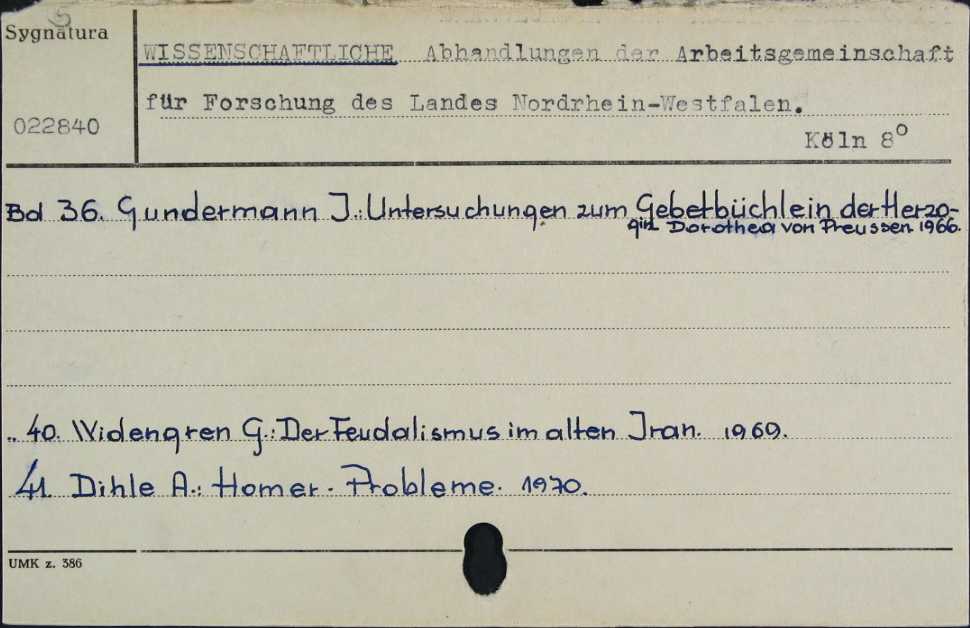 Sygnatura
WISSENSCHAFTLICHE Abhandlungen der Arbeitsgemeinschaft
für Forschung des Landes Nordrhein-Westfalen.
022840
Köln 8°
Bd 36. Gundermann J.: Untersuchungen zum Gebetbüchlein der Herzo-
gin Dorothea von Preussen. 1966.
„ 40. Widengren G.: Der Feudalismus im alten Iran. 1969.
41. Dihle A.: Homer-Probleme. 1970.
UMK z. 386